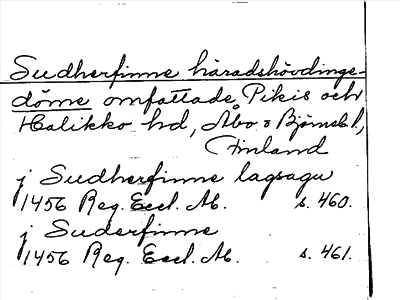 Sudherfinne häradshövdinge-
döme omfattade Pikis och
Halikko hd, Åbo o Björneb. l,
Finland
j Sudherfinne lagsagu
1456 Reg. Eccl. Ab. s. 460.
j Suderfinne
1456 Reg. Eccl. Ab. s. 461.